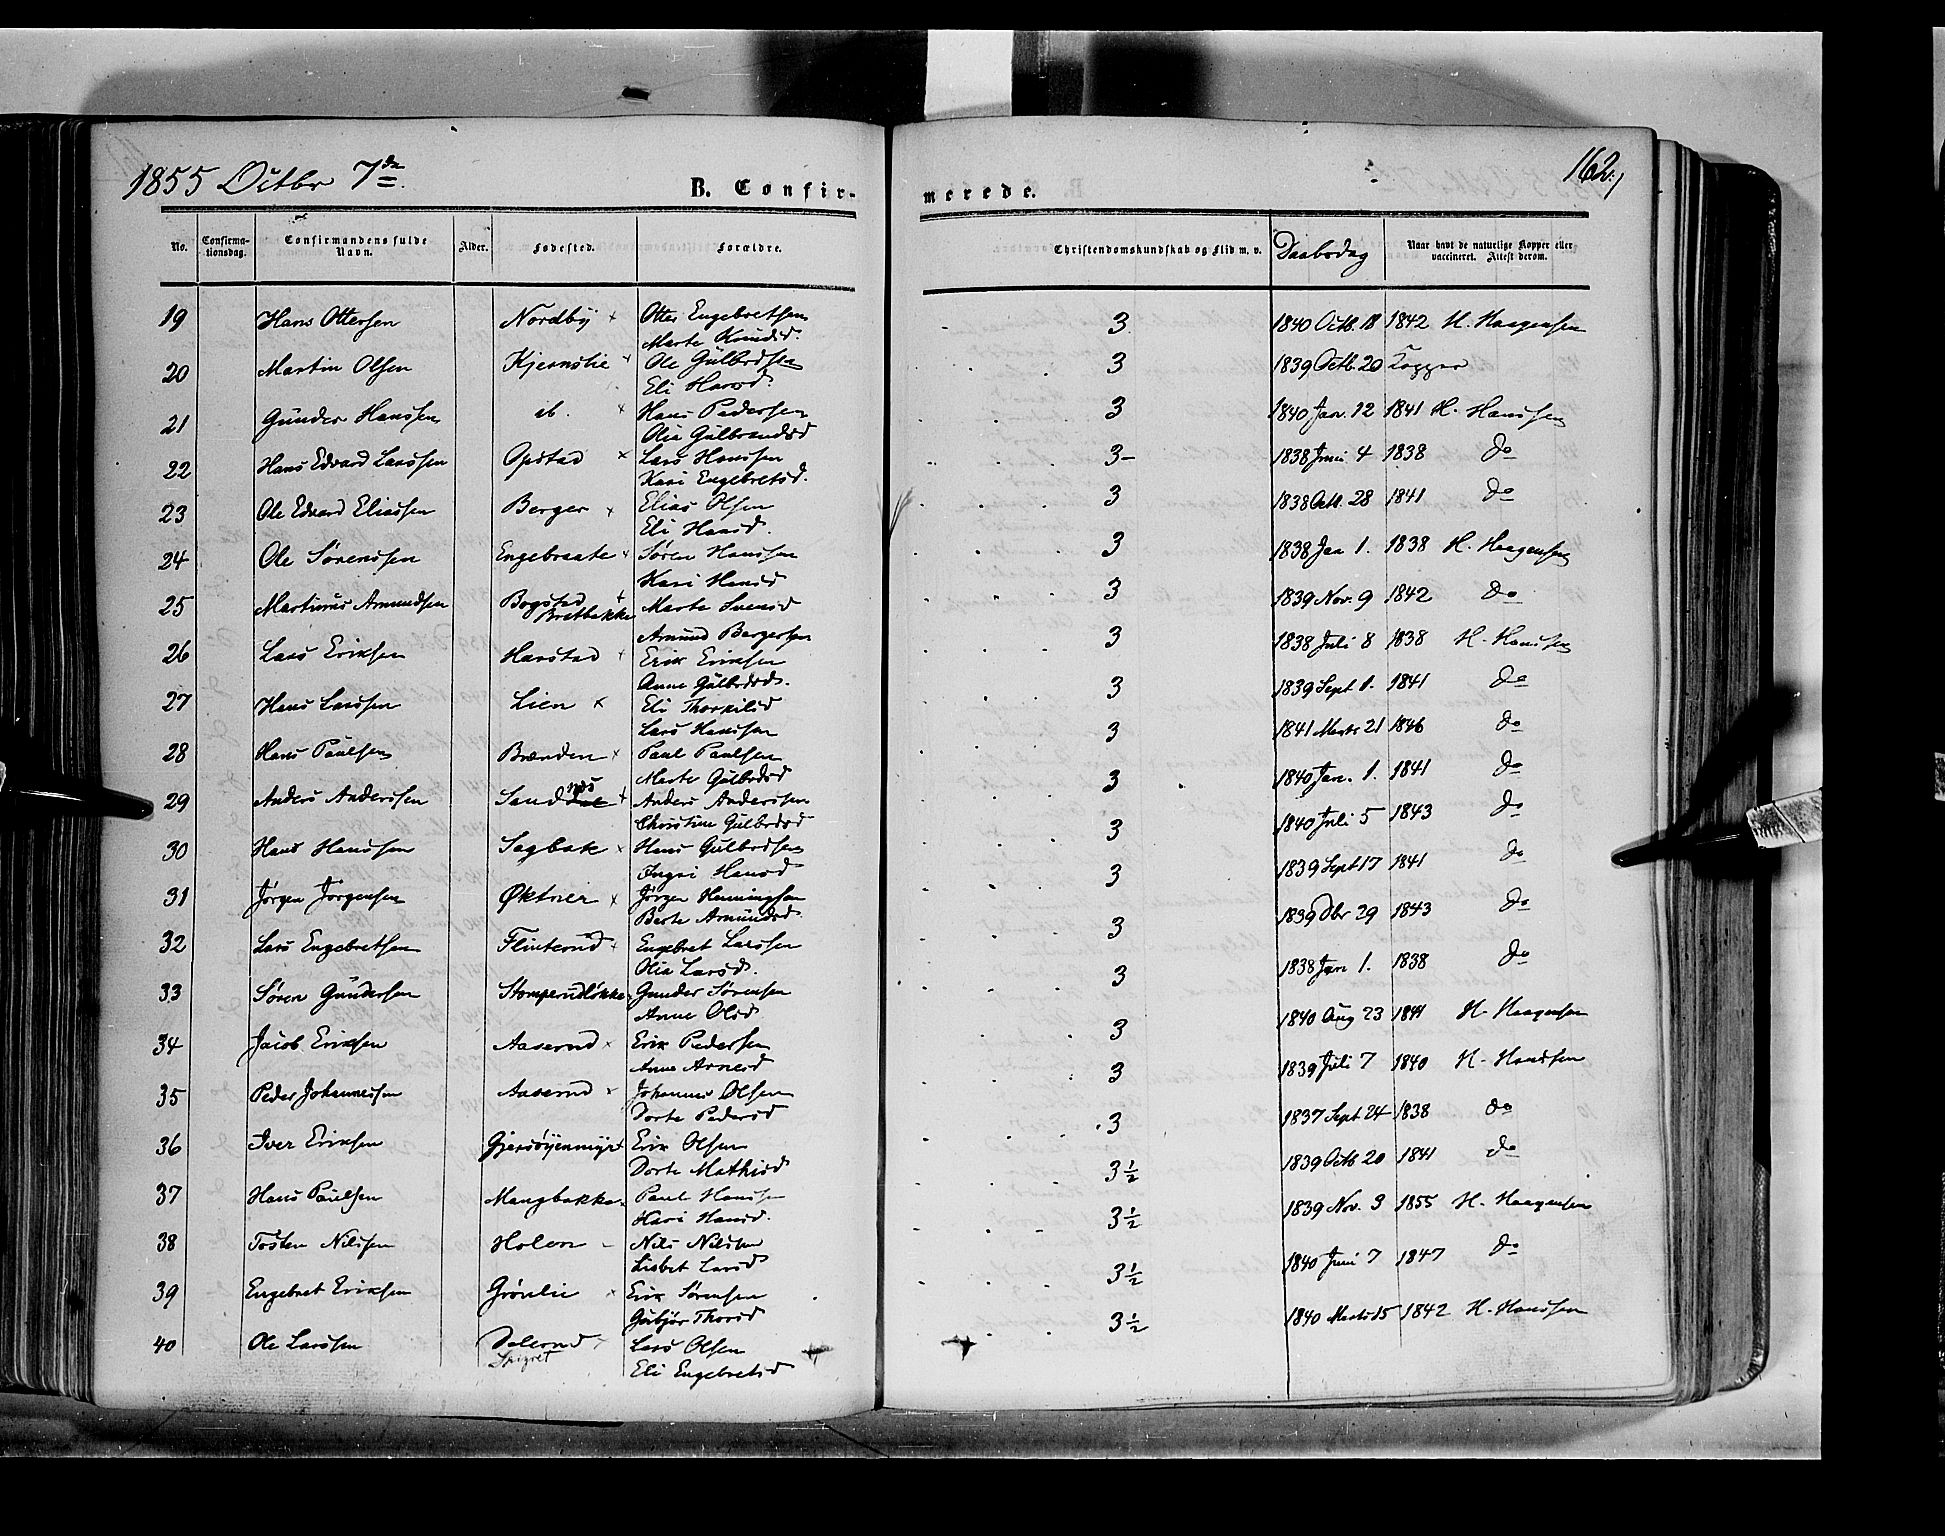 1855 Octbr 7de
162.
B. Confirmerede.
No. Confirmationsdag. Confirmandens fulde Navn. Alder. Fødested. Forældre. Christendomskundskab og Flid m. v. Daabsdag Naar havt de naturlige Kopper eller vaccineret. Attest derom.
19 Hans Ottersen Nordby x Otter Engebretsen 3 1840 Octb. 18 1842 H. Haagensen
Marte Knudsd.
20 Martin Olsen Kjernslie x Ole Gulbrdsen 3 1839 Octb. 20 Kopper
Eli Hansd.
21 Gunder Hanssen ib. x Hans Pedersen 3 1840 Jan. 12 1841 H. Hanssen
Olia Gulbrandsd
22 Hans Edvard Larssen Opstad x Lars Hanssen 3- 1838 Juni 4 1838 do
Kari Engebretsd.
23 Ole Edvard Eliassen Berger x Elias Olsen 3 1838 Octb. 28 1841 do
Eli Hansd.
24 Ole Sørenssen Engebraate x Søren Hanssen 3 1838 Jan 1. 1838 H. Haagensen
Kari Hansd
25 Martinus Amundsen Bogstad x Bratbakke Marte Svensd 3 1839 Nov. 9 1842 do
Amund Bergersen
26 Lars Eriksen Harstad x Erik Eriksen 3 1838 Juli 8 1838 H. Hanssen
Anne Gulbrdsd.
27 Hans Larssen Lien x Eli Thorkilsd 3 1839 Sept 1. 1841 do
Lars Hanssen
28 Hans Paulsen Brænden x Paul Paulsen 3 1841 Marts 21 1846 do
Marte Gulbrdsd
29 Anders Anderssen Sandnæs x Anders Anderssen 3 1840 Jan. 1. 1841 do
Christine Gulbrdsd
30 Hans Hanssen Sagbak x Hans Gulbrdsen 3 1840 Juli 5 1843 do
Ingri Hansd
31 Jørgen Jørgensen Øktner x Jørgen Henningsen 3 1839 Sept 17 1841 do
Berte Amundsd.
32 Lars Engebretsen Flinterud x Engebret Larssen 3 1839 Dbr 29 1843 do
Olia Larsd.
33 Søren Gundersen Stomperudløkke Gunder Sørensen 3 1838 Jan 1. 1838 do
Anne Olsd
34 Jacob Eriksen Aaserud x Erik Pedersen 3 1840 Aug 23 1841 H. Haagensen
Anne Arnesd
35 Peder Johannessen Aaserud x Johannes Olsen 3 1839 Juli 7 1840 H. Hanssen
Dorte Pedersd
36 Iver Eriksen Gjersøyenmyr x Erik Olsen 3 1837 Sept 24 1838 do
Dorte Mathisd
37 Hans Paulsen Mangbakken Paul Hanssen 3½ 1839 Octb 20 1841 do
Kari Hansd.
38 Tosten Nilssen Holen Nils Nilssen 3½ 1839 Nov. 3 1855 H. Haagensen
Lisbet Larsd
39 Engebret Eriksen Grønlie x Erik Sørensen 3½ 1840 Juni 7 1847 do
Gubjør Thorsd
40 Ole Larssen Dalerud Lars Olsen 3½ 1840 Marts 15 1842 H. Hanssen
Eli Engebretsd